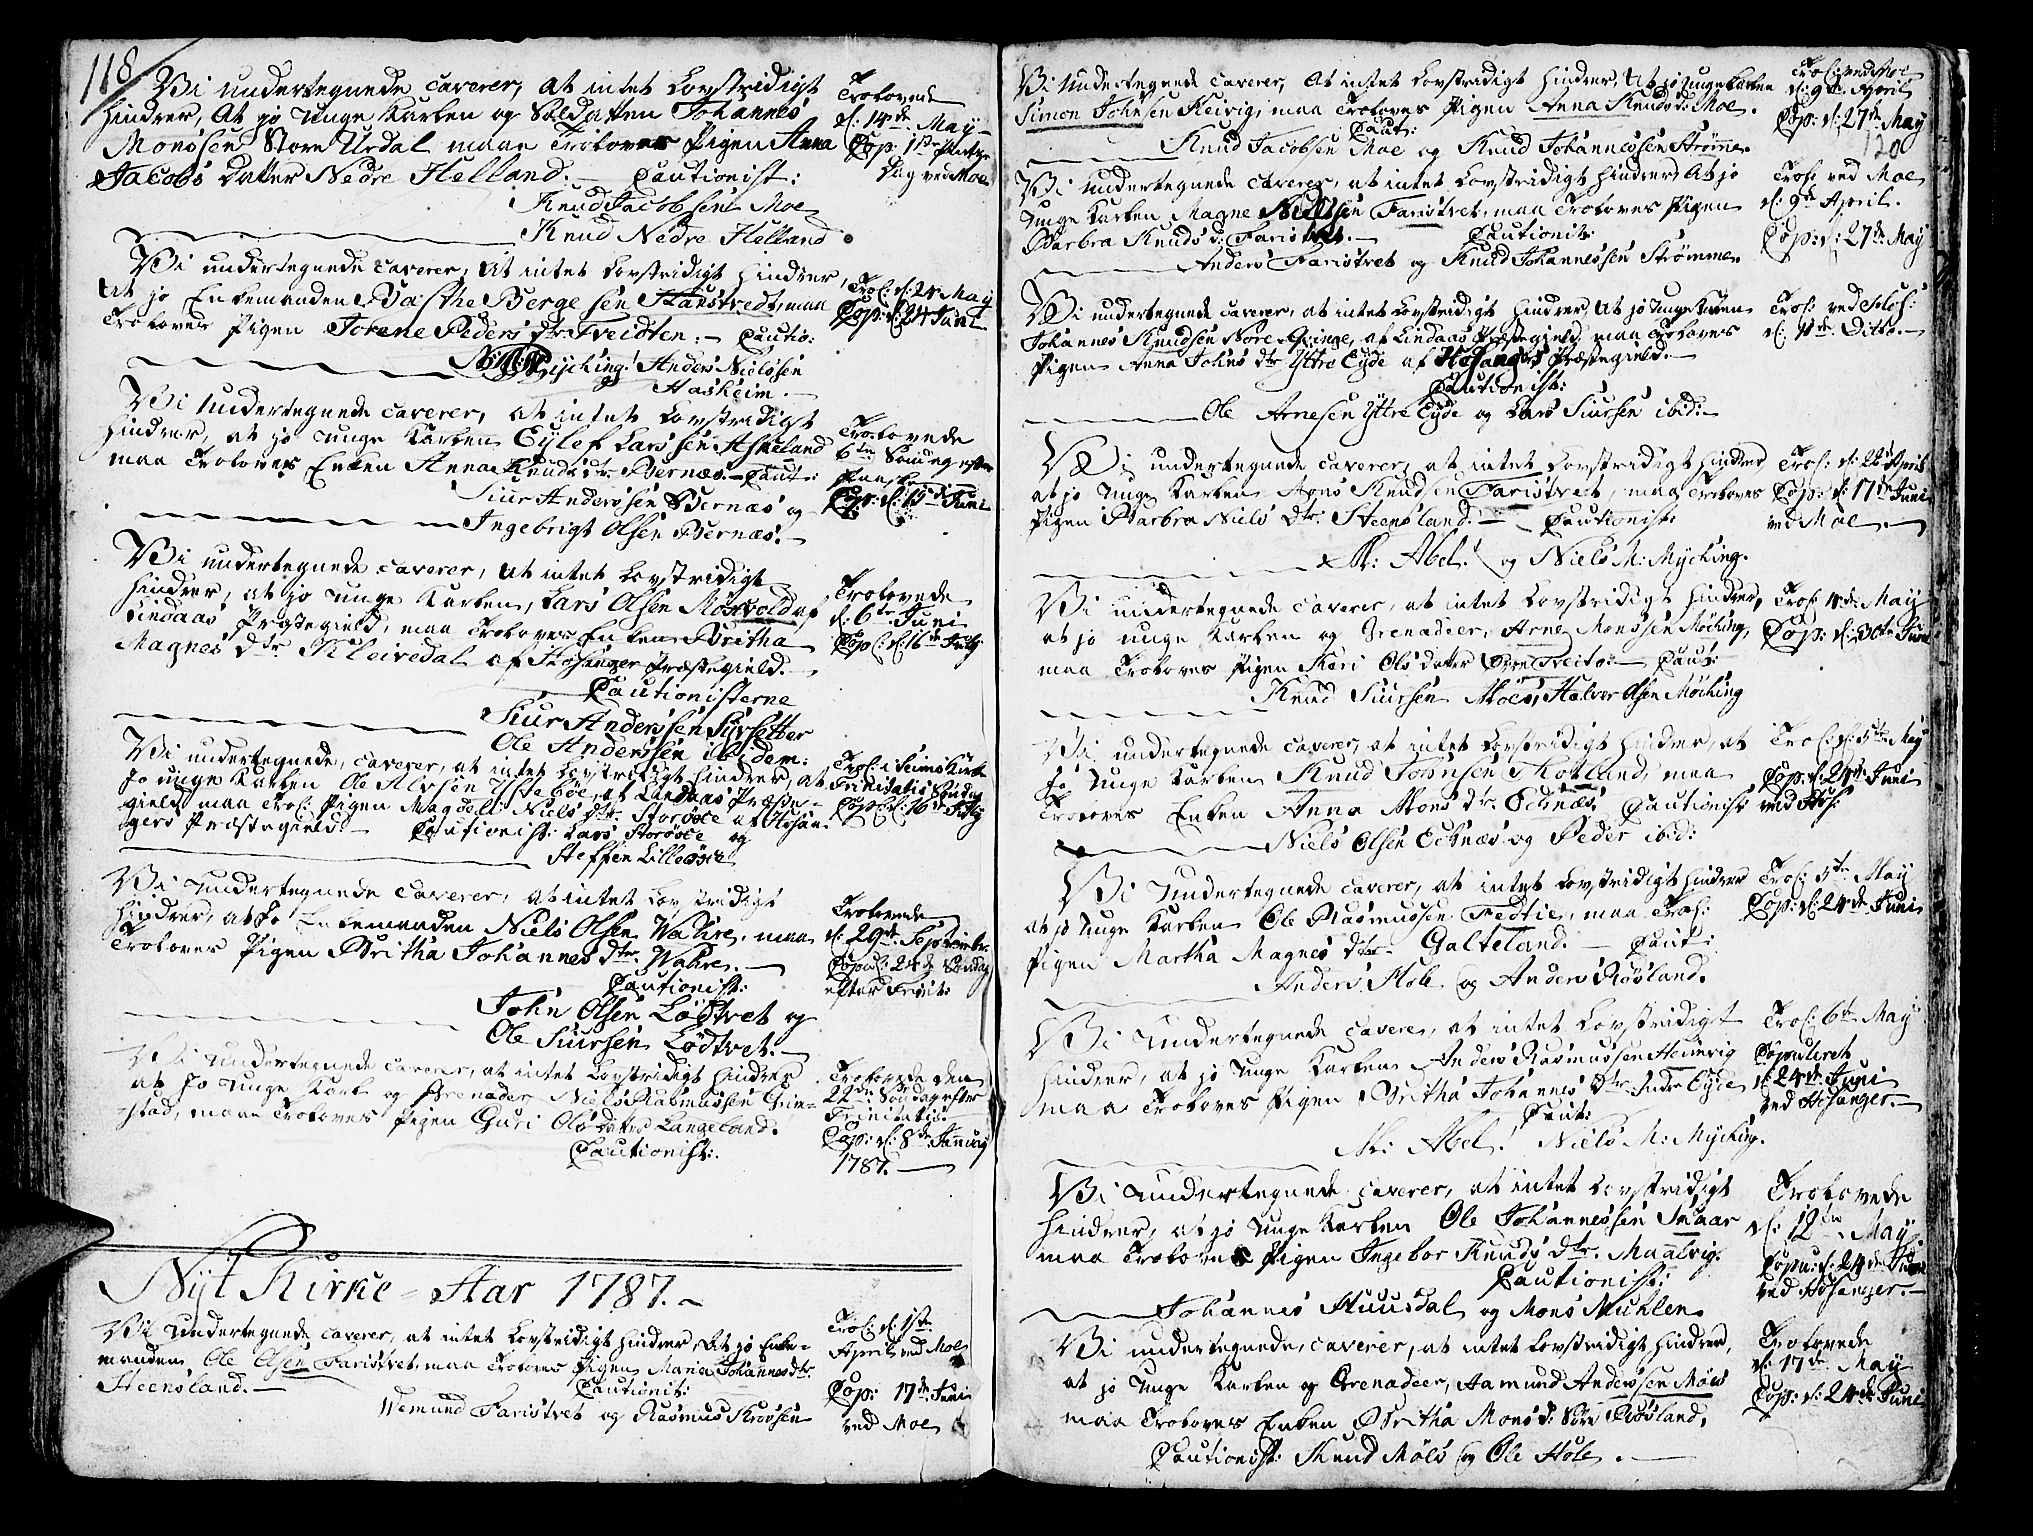 118
Vi undertegnede caverer, at intet Lovstridigt
hindrer, At jo unge Karlen og Soldatten Johannes
Monssen Store Urdal maae Troloves Pigen Anna
Jacobs Datter Nedre Helland. — Cautionist:
Knud Jacobsen Moe
Knud Nedre Helland
Trolovede
d: 14de May
Cop: 1ste
Dag ved Moe
Vi undertegnede caverer, At intet Lovstridigt hindrer,
At jo Enkemanden Basthe Bergesen Hanstvedt, maa
Troloves Pigen Torene Peders dtr Tveidten. — Cautio:
Mycking. Anders Nielssen
Hasheim. —
Trol: d: 21 May
Cop: d: 24 Juni
Vi undertegnede caverer, at intet Lovstridigt
hindrer, at jo unge Karlen Eylef Larssen Askeland
maa Troloves Enken Anna Knuds dtr. Bernæs. — Caut:
Siur Anderssen Bernæs og
Ingebrigt Olsen Bernæs. —
Trolovede
6te Søndag efter
Paaske
Cop: d: 15de Juni
Vi undertegnede caverer, at intet Lovstridigt
hindrer, at jo unge Karlen, Lars Olsen Mosvold af
Lindaas Præstegield, maa Troloves Enken Britha
Magnes dtr Kleivedal af Hosanger Præstegield. —
Cautionisterne
Siur Anderssen Syssetter
Ole Anderssen ibidem:
Trolovede
d: 6te Juni
Cop: d: 16de July
Vi undertegnede, caverer, at intet Lovstridigt hindrer, at
jo unge Karlen Ole Alvsen Ystebøe, af Lindaas Præste-
gield maa Trol: Pigen Magdeli Niels dtr. Storøste af Hosan-
gers Præstegield. — Cautionist: Lars Storøste og
Steffen Lilleøste
Trol: i Seims Kirke
Trinitatis Søndag
Cop: d: 16de July
Vi undertegnede caverer, at intet Lovstridigt
hindrer, at jo Enkemanden Niels Olsen Wahre, maa
Troloves Pigen Britha Johannes dtr. Wahre. —
Cautionist:
John Olsen Lødtvet og
Ole Siursen Lødtvet. —
Trolovede
d: 29de September
Copul: 24de Søndag
efter Trinit:
Vi undertegnede caverer, at intet Lovstridigt hindrer
at jo unge Karl og Grenader Niels Rasmussen Grim-
stad, maae Troloves Pigen Guri Ols datter Langeland.
Cautionist:
Trolovede den
22de Søndag efter
Trinitatis
Cop: d: 8de January
1787. —
Nyt Kirke-Aar 1787. —
Vi undertegnede caverer, at intet Lovstridigt hindrer, At jo Enke-
manden Ole Olsen Faristvet, maa Troloves Pigen Maria Johannes dtr.
Steensland. — Cautionit:
Wemund Faristvet og Rasmus Krossen
Trol: d: 1ste
April ved Moe
Cop: 17de Juni
ved Moe
Vi Undertegnede caverer, At intet Lovstridigt hindrer, At jo Unge Karlen
Simon Johnsen Keivig, maa Troloves Pigen Anna Knuds d: Moe.
Caut:
Knud Jacobsen Moe og Knud Johannessen Strømme.
Trol: ved Moe
d: 9de April
Cop: d: 27de May
120
Vi undertegnede caverer, at intet Lovstridigt hindrer, At jo
Unge Karlen Magne Nielssen Faristvet, maa Troloves Pigen
Barbra Knuds d: Faristvet. — Cautionit:
Anders Faristvet og Knud Johannessen Strømme.
Trol: ved Moe
d: 9de April.
Cop: d: 27de May
Vi undertegnede caverer, at intet Lovstridigt hindrer, At jo Unge Karlen
Johannes Knudsen Nore Qvinge, af Lindaas Præstegield, maa Troloves
Pigen Anna Johns dtr Yttre Eyde af Hosangers Præstegield. —
Cautionist:
Ole Arnesen Yttre Eyde og Lars Siursen ibid: —
Trol: ved Hos:
d: 11te Dito. —
Vi undertegnede caverer, at intet Lovstridigt hindrer
at jo Unge Karlen Mons Knudsen Faristvet, maa Troloves
Pigen Barbra Niels Dtr: Steensland. — Cautionist:
M: Abel. og Niels M: Mycking.
Trol: d: 26 April
Cop: d: 17de Juni
ved Moe. —
Vi undertegnede caverer, at intet Lovstridigt hindrer,
at jo unge Karlen og Grenadeer, Arne Monssen Møcking,
maa Troloves Pigen Kari Ols datter Øvre Tveitø: — Caut:
Knud Siursen Moes, Halvor Olsen Møcking
Trol: 4de May
Cop: d: 30te Juni
Vi undertegnede caverer, at intet Lovstridigt hindrer, at
jo Unge Karlen Knud Johnsen Totland, maa
Troloves Enken Anna Mons dtr. Echnæs Cautionist
Niels Olsen Echnæs og Peder ibid:
Trol: d: 5te May
Cop: d: 24de Juni
ved Hos:
Vi Undertegnede caverer, at intet Lovstridigt hindrer
at jo Unge Karlen Ole Rasmussen Tvedtie, maa Trol:
Pigen Martha Magnes Dtr. Galteland. — Caut:
Anders Hole og Anders Røsland.
Trol: 5te May
Cop: d: 24de Juni
Vi Undertegnede Caverer, at intet Lovstridigt
hindrer, at jo Unge Karlen Anders Rasmussen Heimvig
maa Troloves Pigen Britha Johannes Dtr. Indre Eyde
Caut:
M: Abel. Niels M: Mycking.
Trol: 6te May
Copuleret
d: 24de Juni
ved Hosanger. —
Vi Undertegnede caverer, at intet Lovstridigt
hindrer, at jo Unge Karlen Ole Johannessen Snaar
maa Troloves Pigen Ingebor Knuds Dtr. Maalvig.
Cautionist:
Johannes Huusdal og Mons Muhlen
Trolovede
d: 12te May.
Copu: d: 24de Juni
ved Hosanger. —
Vi undertegnede, caverer, at intet Lovstridigt hindrer,
at jo Unge Karlen og Grenadeer, Aamund Anderssen Møls
maa Troloves Enken Britha Mons d: Søre Røsland,
Cautionist: Knud Møls og Ole Hole. —
Trolovede
d: 17de May
Cop: d: 24de Juni